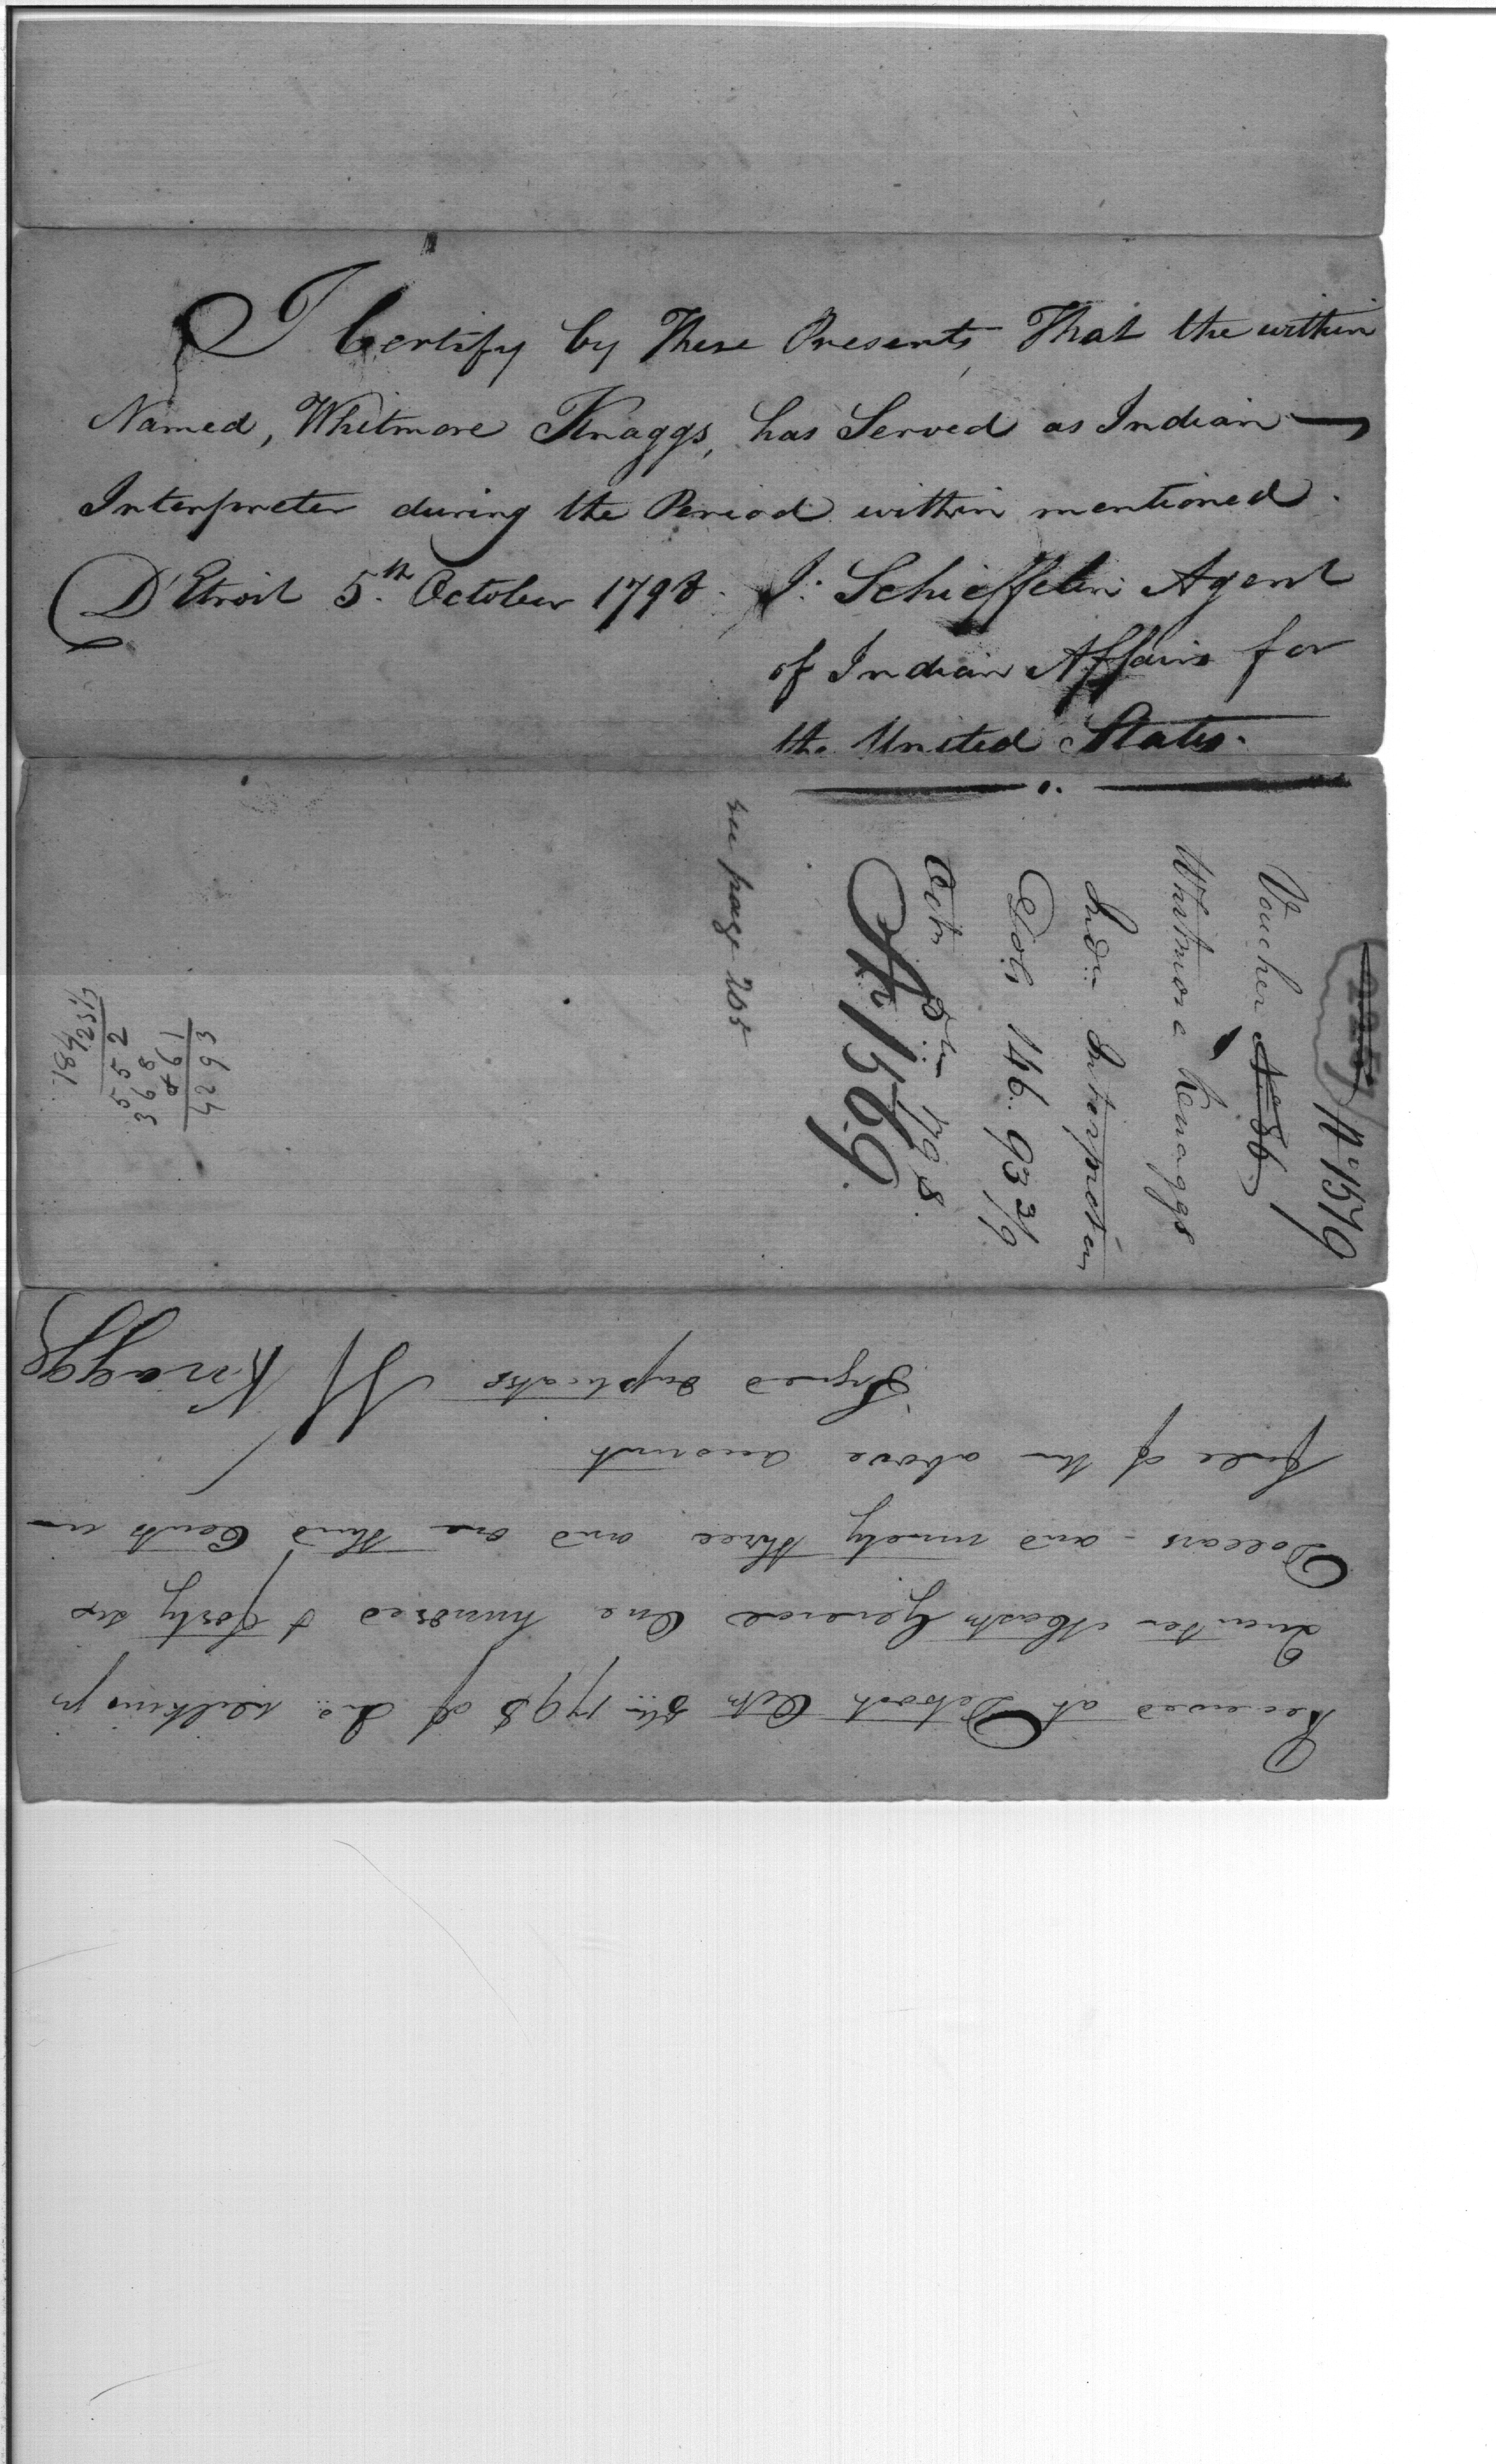 I Certify by These Presents, That the within
Named, Whitmore Knaggs, has Served as Indian
Interpreter during the Period within mentioned.
D'Etroit 5.th October 1798. J: Schieffelin Agent
of Indian Affairs for
the United States.
No 1579
Voucher No 86
Whitmore Knaggs
Indn Interpreter
Dols 146..93 3/9
Octr 5th 1798.
No 1569.
see page 205
3624
Received at Detroit Octr 5th 1798 of Jno. Wilkins Jr
Quarter Mastr General One hundred & forty six
Dollars and ninety three and one third Cents in
full of the above account
Signed duplicates W Knaggs